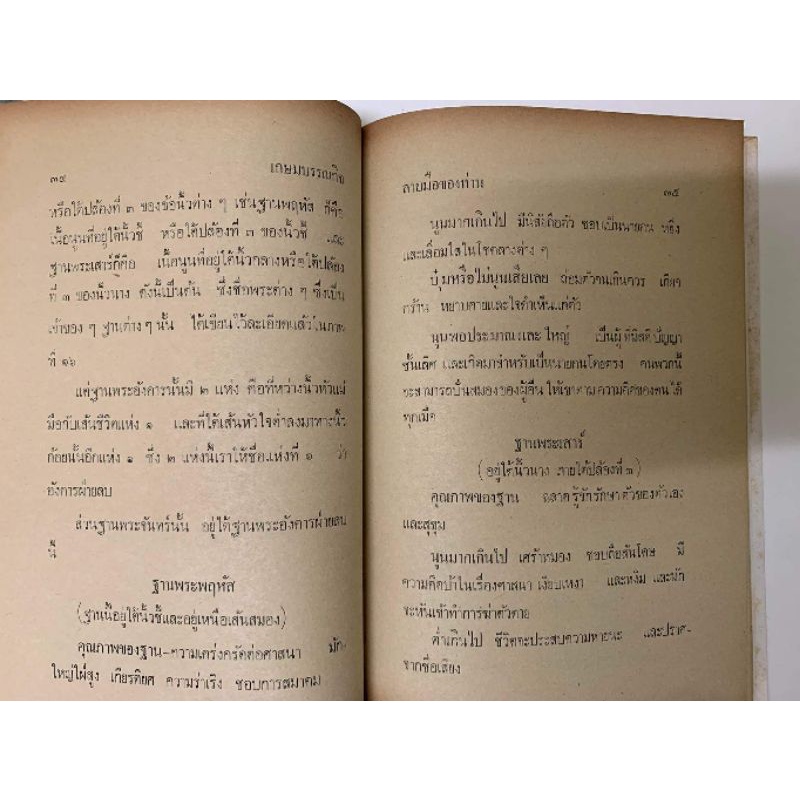 ๓๔ เกษมบรรณกิจ
หรือใต้ปล้องที่ ๓ ของข้อนิ้วต่าง ๆ เช่นฐานพฤหัส ก็คือ
เนื้อนูนที่อยู่ใต้นิ้วชี้ หรือใต้ปล้องที่ ๓ ของนิ้วชี้ และ
ฐานพระเสาร์ก็คือ เนื้อนูนที่อยู่ใต้นิ้วกลางหรือใต้ปล้อง
ที่ ๓ ของนิ้วนาง ดังนี้เป็นต้น ซึ่งชื่อพระต่าง ๆ ซึ่งเป็น
เจ้าของ ๆ ฐานต่างๆ นั้น ได้เขียนไว้ละเอียดแล้วในภาพ
ที่ ๑๖
แต่ฐานพระอังคารนั้นมี ๒ แห่ง คือที่หว่างนิ้วหัวแม่
มือกับเส้นชีวิตแห่ง ๑ และที่ใต้เส้นหัวใจต่ำลงมาทางนิ้ว
ก้อยนั้นอีกแห่ง ๑ ซึ่ง ๒ แห่งนี้เราให้ชื่อแห่งที่ ๑ ว่า
อังคารฝ่ายลบ
ส่วนฐานพระจันทร์นั้น อยู่ใต้ฐานพระอังคารฝ่ายลบ
นี้
ฐานพระพฤหัส
(ฐานนี้อยู่ใต้นิ้วชี้และอยู่เหนือเส้นสมอง)
คุณภาพของฐาน-ความเคร่งครัดต่อศาสนา มัก
ใหญ่ใฝ่สูง เกียรติยศ ความร่าเริง ชอบการสมาคม
ลายมือของท่าน ๓๕
นูนมากเกินไป มีนิสัยถือตัว ชอบเป็นนายคน หยิ่ง
และเลื่อมใสในโชคลางต่าง ๆ
บุ๋มหรือไม่นูนเสียเลย ถ่อมตัวจนเกินควร เกียจ
คร้าน หยาบคายและใจดำเห็นแก่ตัว
นูนพอประมาณและใหญ่ เป็นผู้ที่มีสติปัญญา
ชั้นเลิศ และเกิดมาสำหรับเป็นนายคนโดยตรง คนพวกนี้
จะสามารถปั่นสมองของผู้อื่น ให้เขาตามความคิดของตนได้
ทุกเมื่อ
ฐานพระเสาร์
(อยู่ใต้นิ้วนาง ภายใต้ปล้องที่ ๓)
คุณภาพของฐาน ฉลาดรู้จักรักษาตัวของตัวเอง
และสุขุม
นูนมากเกินไป เศร้าหมอง ชอบถือสันโดษ มี
ความคิดบ้าในเรื่องศาสนา เงียบเหงา และหงิม และมัก
จะหันเข้าทำการฆ่าตัวตาย
ต่ำเกินไป ชีวิตจะประสบความหายนะ และปราศ-
จากชื่อเสียง